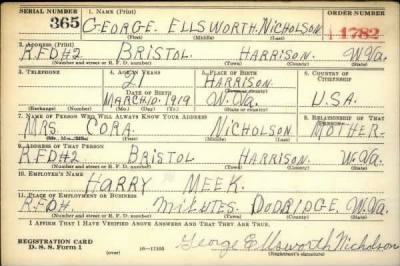 SERIAL NUMBER 1. NAME (Print) ORDER NUMBER
365 GEORGE. ELLSWORTH. NICHOLSON 11782
(First) (Middle) (Last)
2. ADDRESS (Print)
R.F.D#2 BRISTOL. HARRISON. W.Va.
(Number and street or R. F. D. number) (Town) (County) (State)
3. TELEPHONE 4. AGE IN YEARS 5. PLACE OF BIRTH 6. COUNTRY OF CITIZENSHIP
21 HARRISON.
(Town or county)
DATE OF BIRTH
MARCH.10.1919 W.Va. U.S.A.
(Exchange) (Number) (Mo.) (Day) (Yr.) (State or country)
7. NAME OF PERSON WHO WILL ALWAYS KNOW YOUR ADDRESS 8. RELATIONSHIP OF THAT PERSON
MRS. CORA NICHOLSON. MOTHER-
(Mr., Mrs., Miss) (First) (Middle) (Last)
9. ADDRESS OF THAT PERSON
R.F.D#2 BRISTOL HARRISON W.Va.
(Number and street or R. F. D. number) (Town) (County) (State)
10. EMPLOYER'S NAME
HARRY MEEK.
11. PLACE OF EMPLOYMENT OR BUSINESS
R.F.D#. DODRIDGE. W.Va.
(Number and street or R. F. D. number) (Town) (County) (State)
I AFFIRM THAT I HAVE VERIFIED ABOVE ANSWERS AND THAT THEY ARE TRUE.
REGISTRATION CARD
D. S. S. Form 1 (over) 16—17105 George Ellsworth Nicholson
(Registrant's signature)